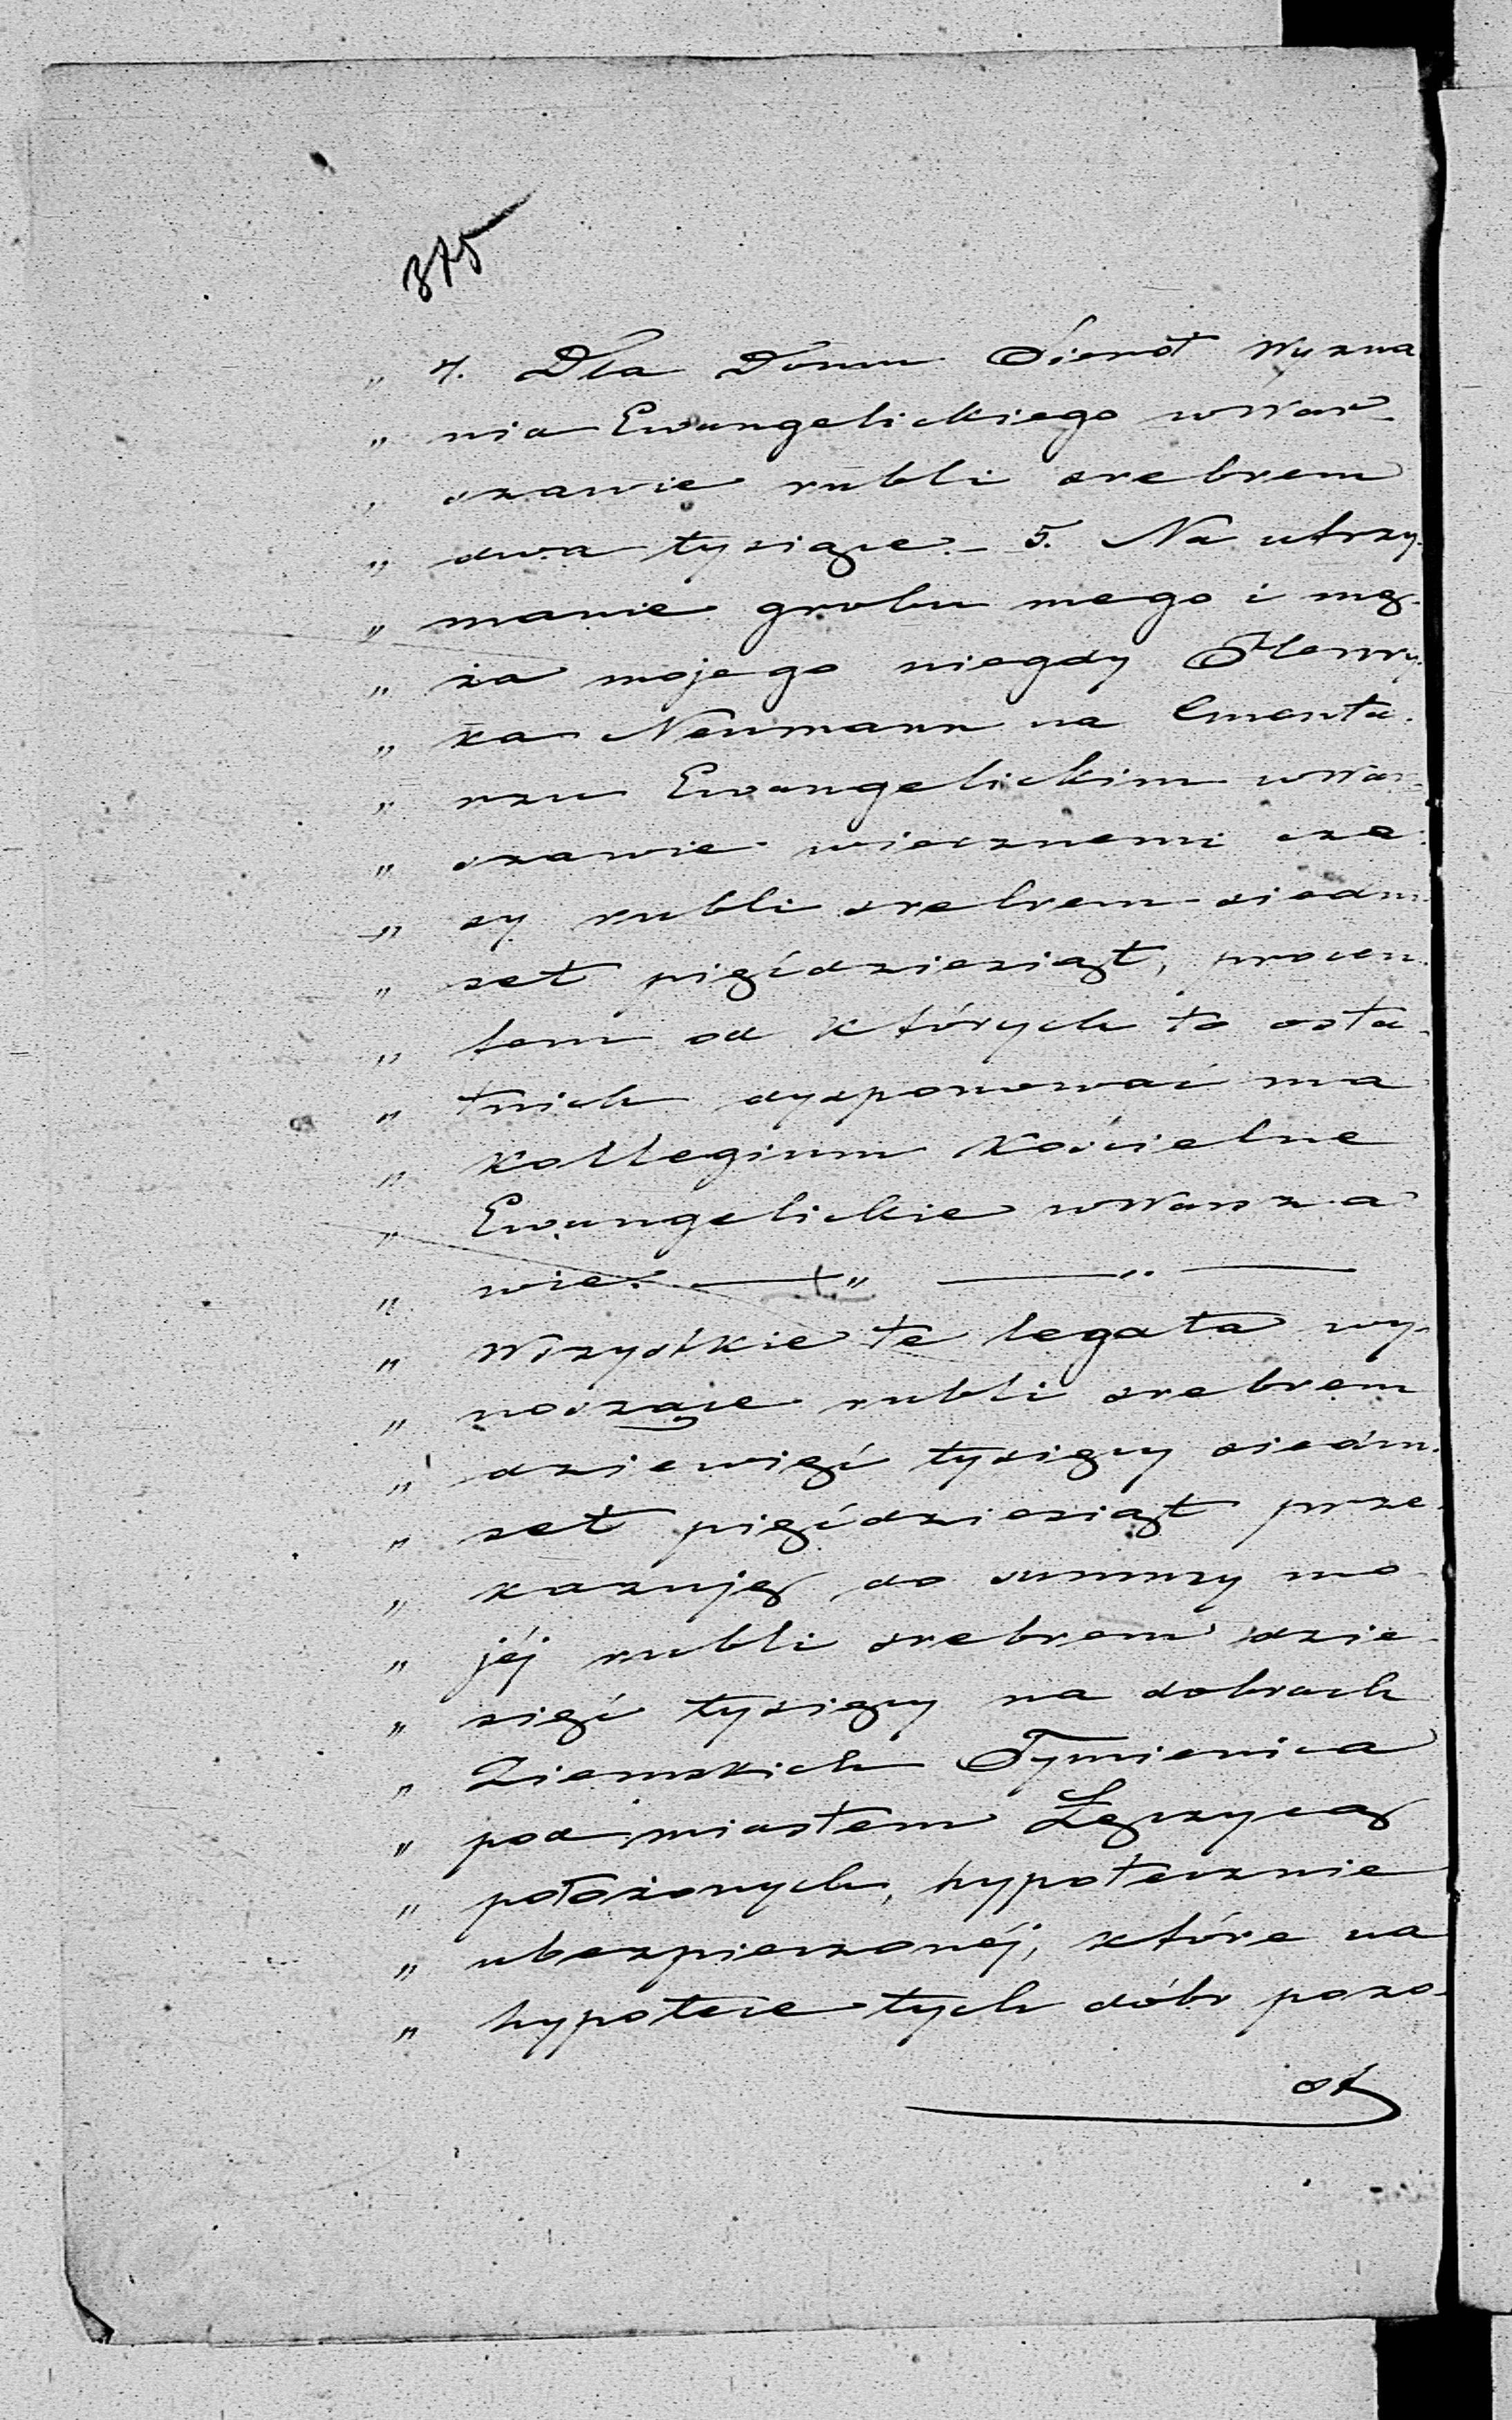 375
„ 4. Dla Domu Sierót Wyzna
„ nia Ewangelickiego w War-
„ szawie rubli srebrem
„ dwa tysiące. – 5. Na utrzy-
„ manie grobu mego i mę-
„ ża mojego niegdy Henry-
„ ka Neumann na Cmenta-
„ rzu Ewangelickim w War-
„ szawie wiecznemi cza-
„ sy rubli srebrem siedm-
„ set pięćdziesiąt, procen-
„ tem od których to osta-
„ tnich dysponować ma
„ Kollegium Kościelne
„ Ewangelickie w Warsza
„ wie. — „ — „ —
„ Wszystkie te legata wy-
„ noszące rubli srebrem
„ dziewięć tysięcy siedm-
„ set pięćdziesiąt prze-
„ kazuję do summy mo-
„ jéj rubli srebrem dzie-
„ sięć tysięcy na dobrach
„ Ziemskich Tymienica
„ pod miastem Łęczycą
„ położonych, hypotecznie
„ ubezpieczonéj, które na
„ hypotece tych dóbr pozo-